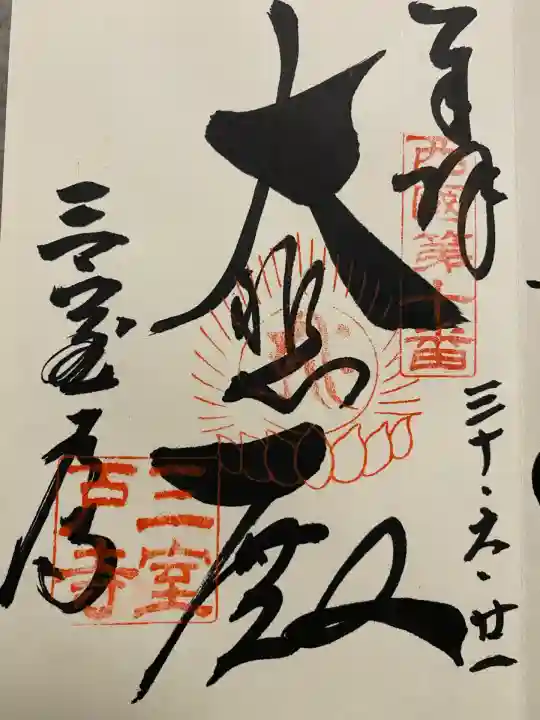 奉拝
西國第十番
三十・六・廿一
大悲殿
三室戸寺
三室戸寺